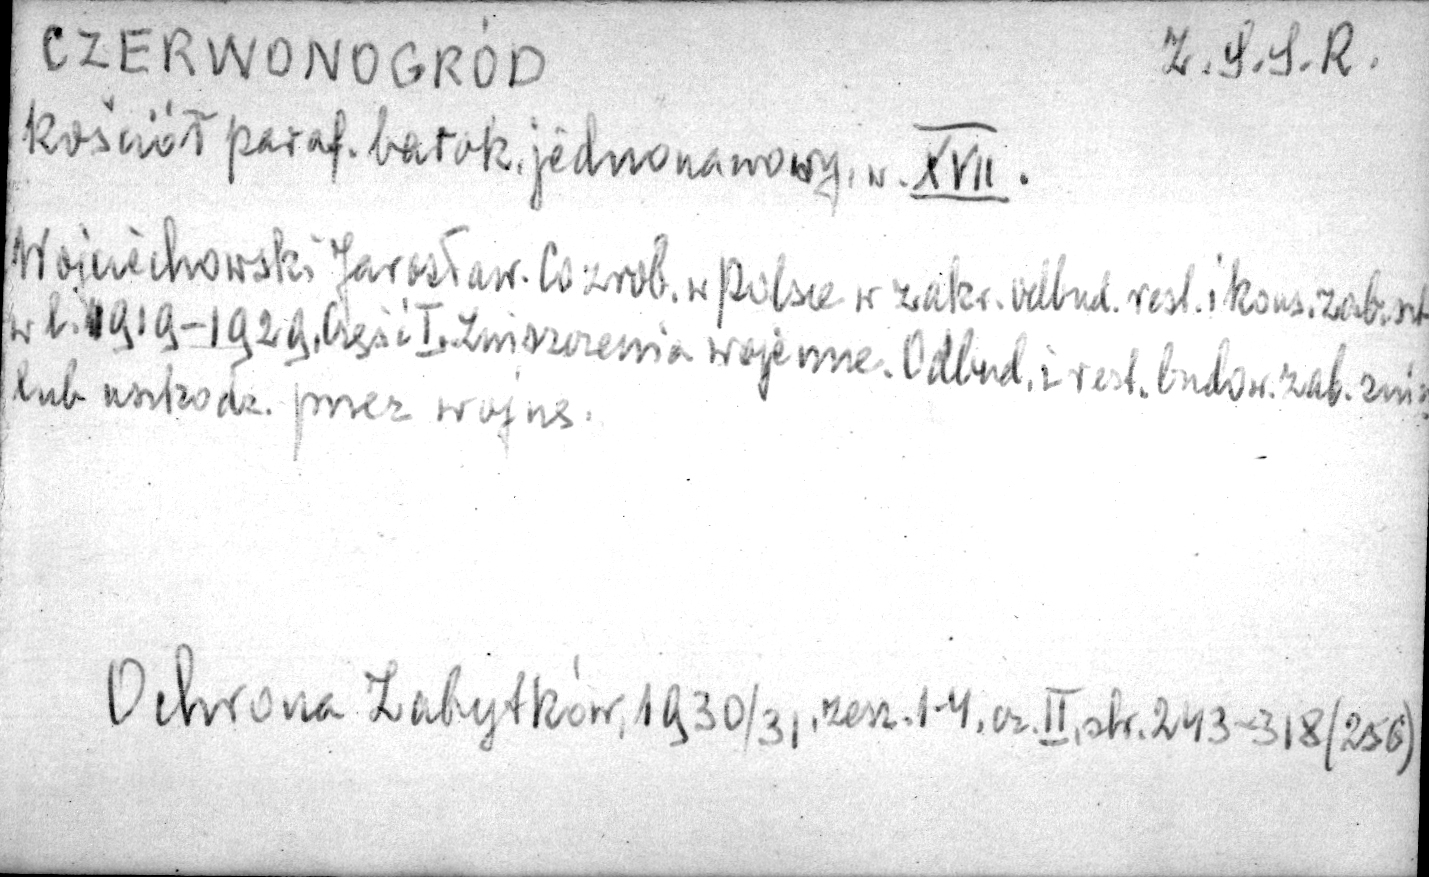 CZERWONOGRÓD Z.S.S.R.
Kościół paraf. barok. jednonawowy, w. XVII.
Wojciechowski Jarosław. Co zrob. w Polsce w zakr. odbud. rest. i kons. zab. szt
w l. 1919-1929. Część I. Zniszczenia wojenne. Odbud. i rest. budow. zab. znisz
lub uszkodz. przez wojnę.
Ochrona Zabytków, 1930/31, zesz. 1-4, cz. II, str. 243-318 (256)